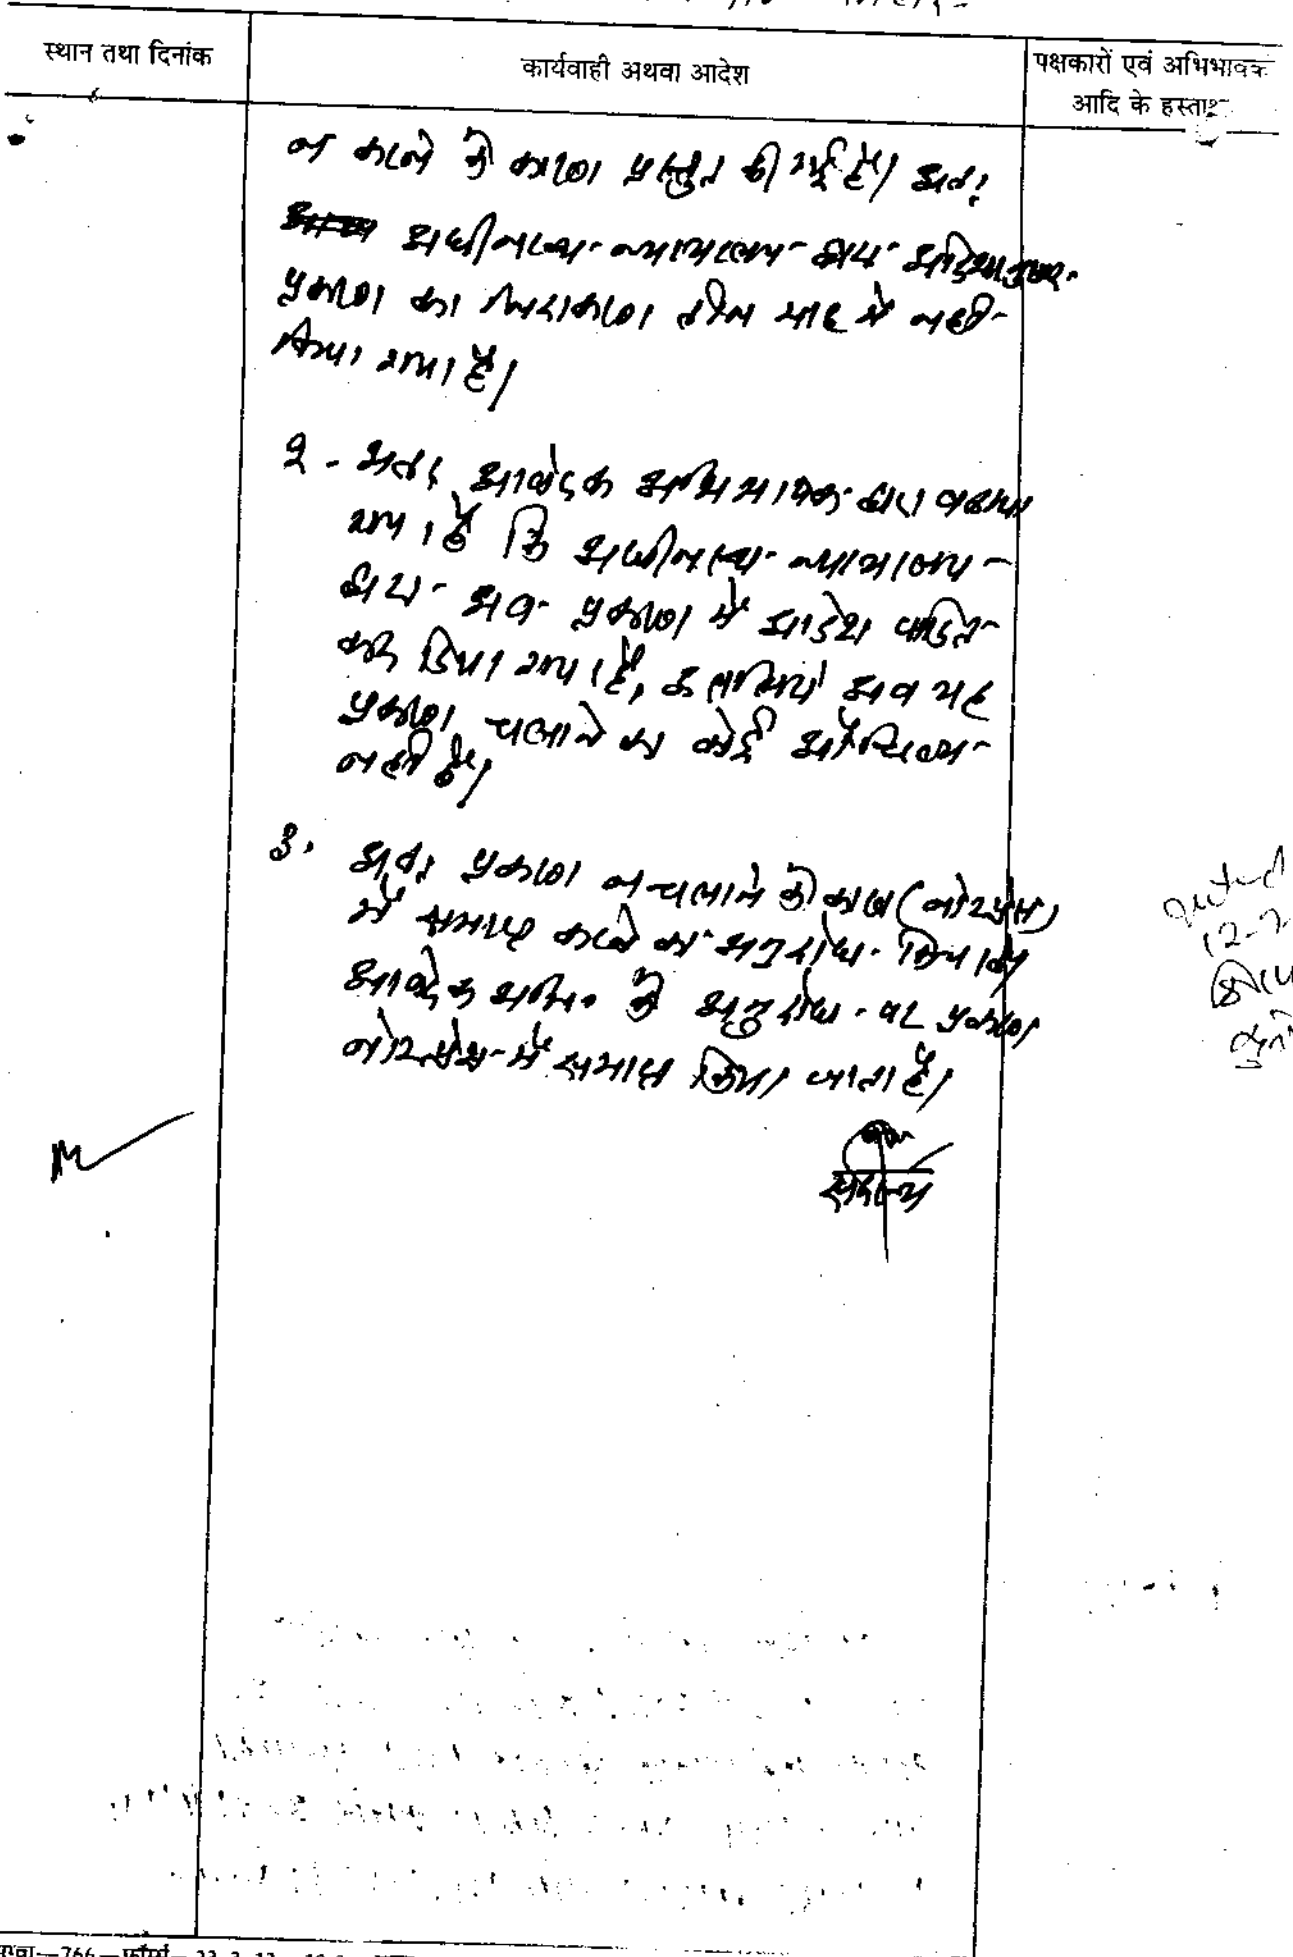 स्थान तथा दिनांक
कार्यवाही अथवा आदेश
पक्षकारों एवं अभिभावक
आदि के हस्ताक्षर
न करने के कारण प्रस्तुत की गई है। अतः
अधीनस्थ न्यायालय द्वारा आदेशानुसार
प्रकरण का निराकरण तीन माह में नहीं
किया गया है।
२- अतः आवेदक अभिभाषक द्वारा बताया
गया है कि अधीनस्थ न्यायालय
द्वारा अब प्रकरण में आदेश पारित
कर दिया गया है, इसलिये अब यह
प्रकरण चलाने का कोई औचित्य
नहीं है।
३. अतः प्रकरण न चलाने के कारण (नोटप्रेस)
में समाप्त करने का अनुरोध किया
आवेदक अभि० के अनुरोध पर प्रकरण
नोटप्रेस में समाप्त किया जाता है।
सदस्य